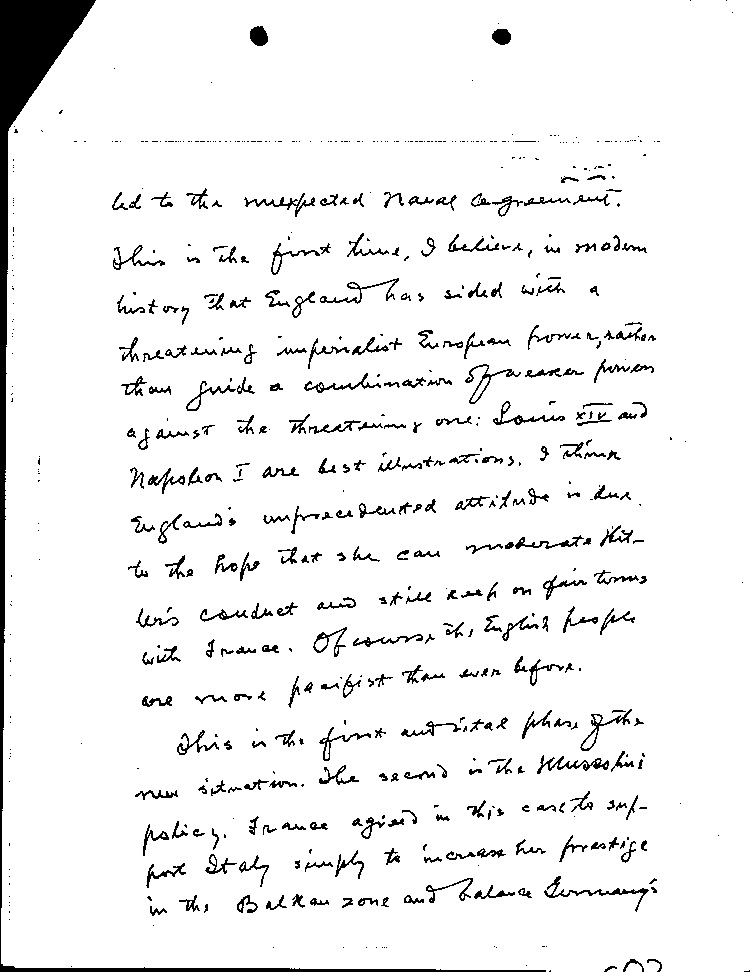 led to the unexpected Naval agreement.
This is the first time, I believe, in modern
history that England has sided with a
threatening imperialist European power, rather
than guide a combination of weaker powers
against the threatening one: Louis XIV and
Napoleon I are best illustrations. I think
England's unprecedented attitude is due
to the hope that she can moderate Hit-
ler's conduct and still keep on fair terms
with France. Of course the English people
are more pacifist than ever before.
This is the first and vital phase of the
new situation. The second is the Mussolini
policy. France agreed in this case to sup-
port Italy simply to increase her prestige
in the Balkan zone and balance Germany's